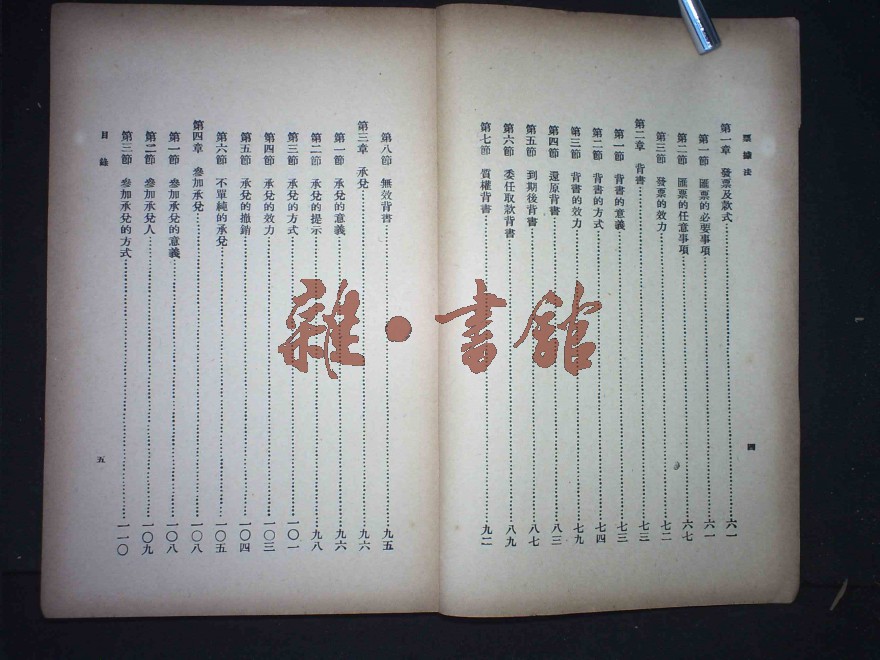 票據法
第一章 發票及款式…………六一
第一節 匯票的必要事項…………六一
第二節 匯票的任意事項…………六七
第三節 發票的效力…………七二
第二章 背書…………七三
第一節 背書的意義…………七三
第二節 背書的方式…………七四
第三節 背書的效力…………七九
第四節 還原背書…………八三
第五節 到期後背書…………八七
第六節 委任取款背書…………八九
第七節 質權背書…………九二
四
第八節 無效背書…………九五
第三章 承兌…………九六
第一節 承兌的意義…………九六
第二節 承兌的提示…………九八
第三節 承兌的方式…………一〇一
第四節 承兌的效力…………一〇三
第五節 承兌的撤銷…………一〇四
第六節 不單純的承兌…………一〇五
第四章 參加承兌…………一〇八
第一節 參加承兌的意義…………一〇八
第二節 參加承兌人…………一〇九
第三節 參加承兌的方式…………一一〇
目錄
五
雜·書館